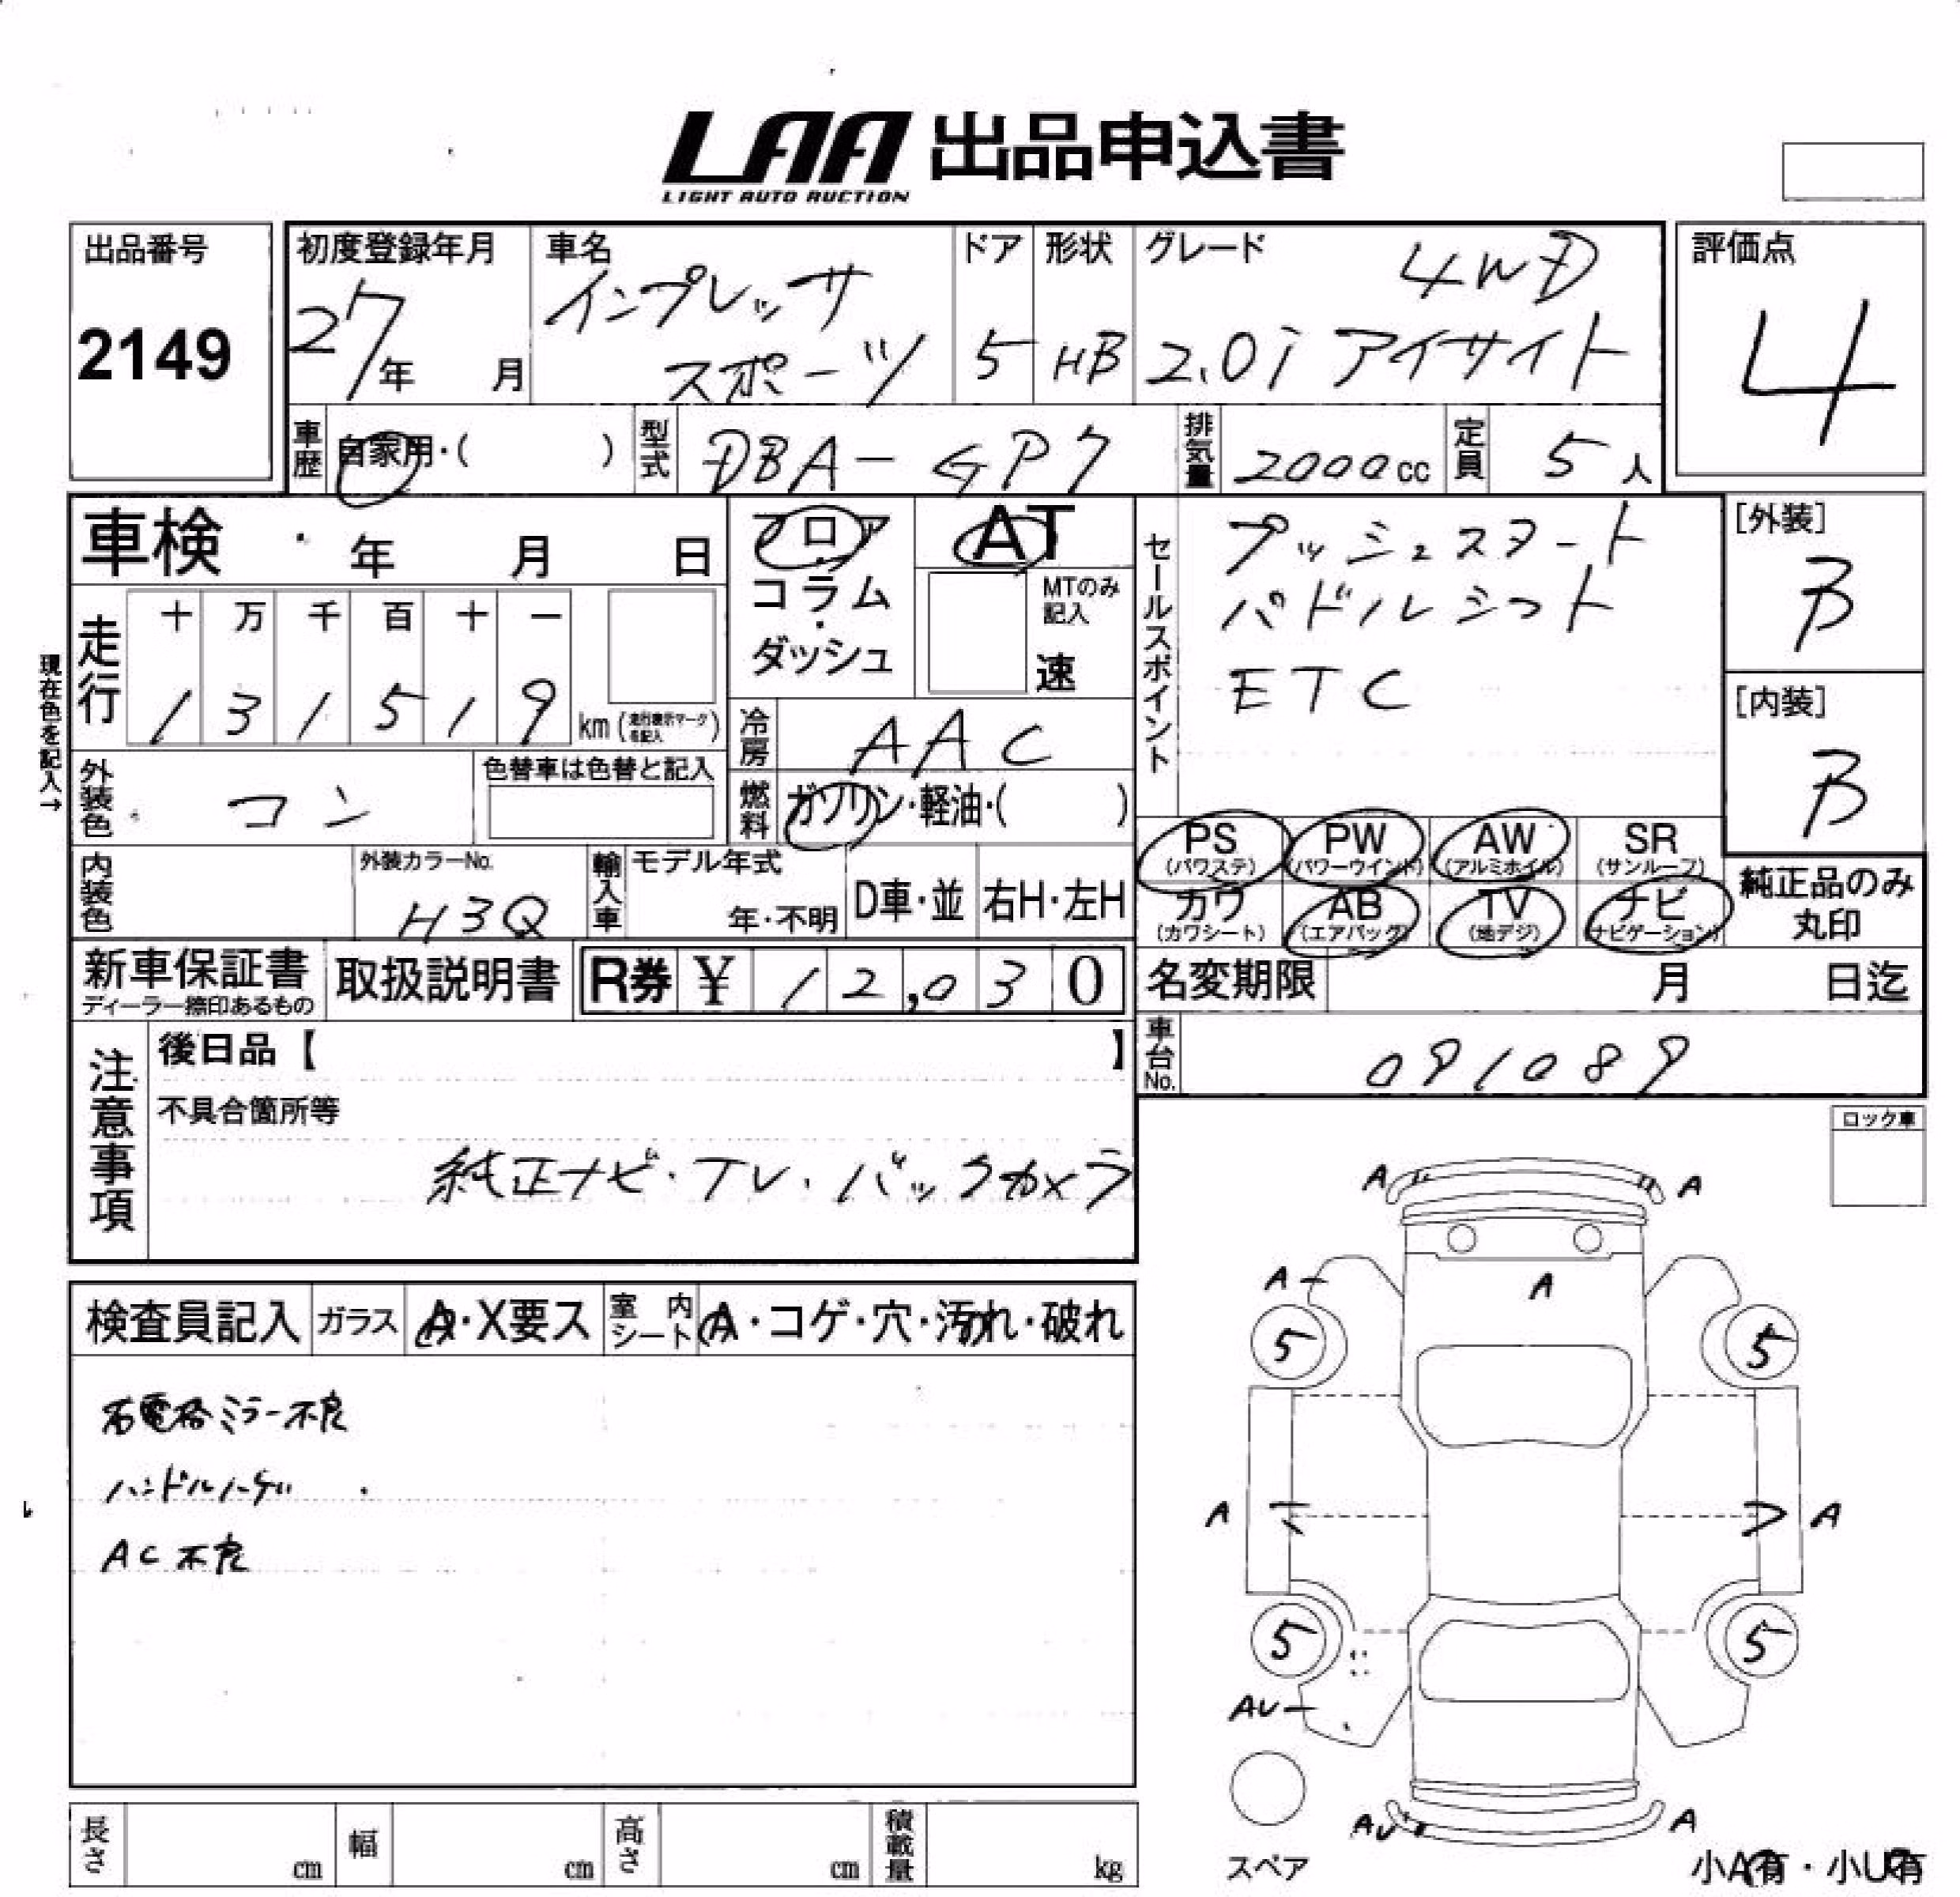 LAA 出品申込書
LIGHT AUTO AUCTION
出品番号
2149
初度登録年月
27年 月
車名
インプレッサ
スポーツ
ドア
5
形状
HB
グレード
4WD
2.0i アイサイト
評価点
4
車歴
自家用・( )
型式
DBA-GP7
排気量
2000cc
定員
5人
車検 年 月 日
フロア
・
コラム
・
ダッシュ
AT
MTのみ
記入
速
セールスポイント
プッシュスタート
パドルシフト
ETC
[外装]
B
[内装]
B
現在色を記入→
走行
十 万 千 百 十 一
1 3 1 5 1 9 km (走行表示マークを記入)
冷房
AAC
外装色
コン
色替車は色替と記入
燃料
ガソリン・軽油・( )
PS
(パワステ)
PW
(パワーウインド)
AW
(アルミホイル)
SR
(サンルーフ)
カワ
(カワシート)
AB
(エアバック)
TV
(地デジ)
ナビ
(ナビゲーション)
純正品のみ
丸印
内装色
外装カラーNo.
H3Q
輸入車
モデル年式
年・不明
D車・並
右H・左H
新車保証書
ディーラー捺印あるもの
取扱説明書
R券 ¥ 12,030
名変期限 月 日迄
注意事項
後日品【 】
不具合箇所等
純正ナビ・TV・バックカメラ
車台No.
091089
ロック車
検査員記入
ガラス
A・X要ス
室内
シート
A・コゲ・穴・汚れ・破れ
右電格ミラー不良
ハンドルハゲ
AC不良
A A
A A
5 5
A A
5 5
AU
AU A
スペア
小A有・小U有
長さ cm
幅 cm
高さ cm
積載量 kg